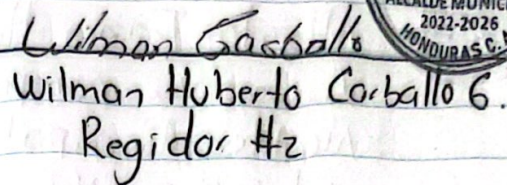 Wilman Carballo
ALCALDE MUNICI
2022-2026
HONDURAS C.
Wilman Huberto Carballo G.
Regidor #2